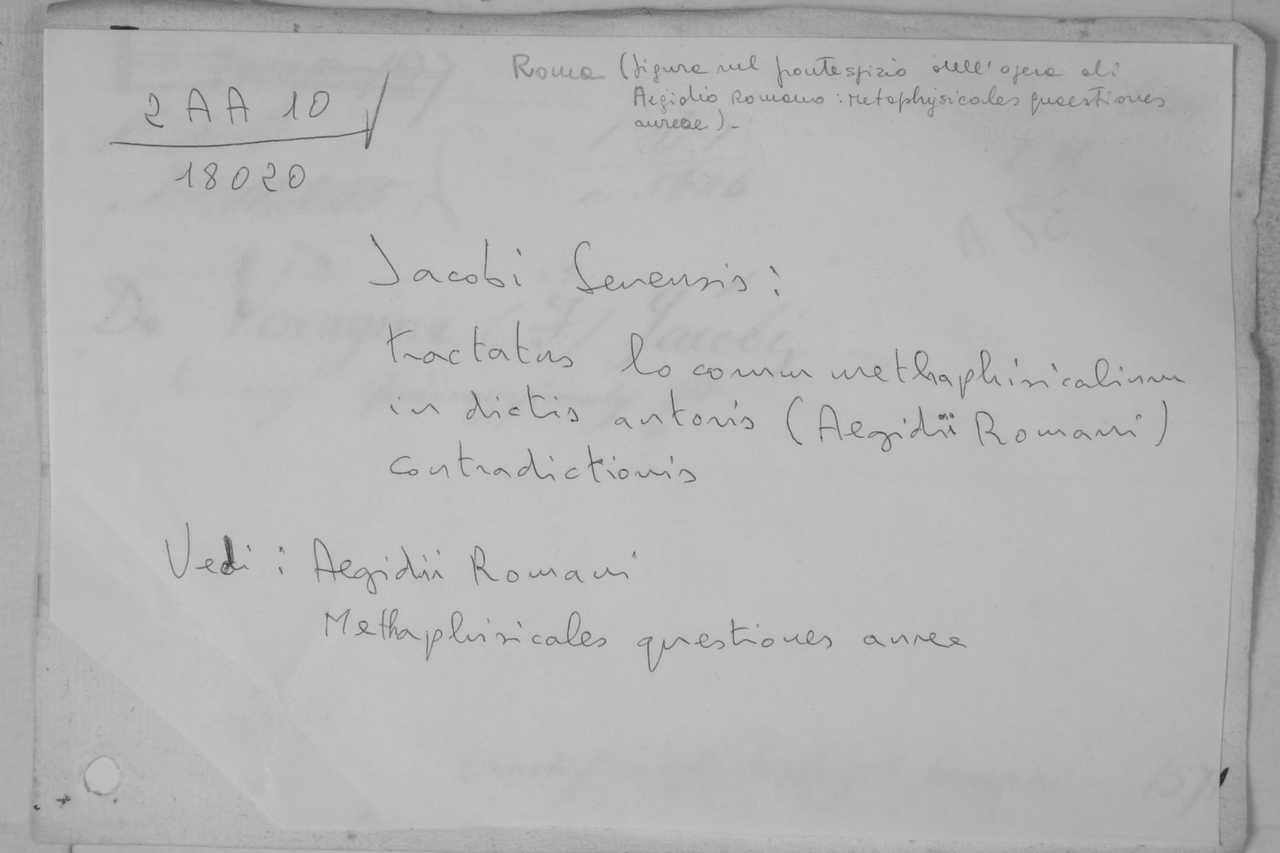 2 AA 10
18020
Roma (figura nel frontespizio dell'opera di
Aegidio Romano: Metaphysicales quaestiones
aureae).-
Jacobi Senensis:
tractatus locorum methaphisicalium
in dictis autoris (Aegidii Romani)
contradictionis
Vedi: Aegidii Romani
Methaphisicales questiones auree